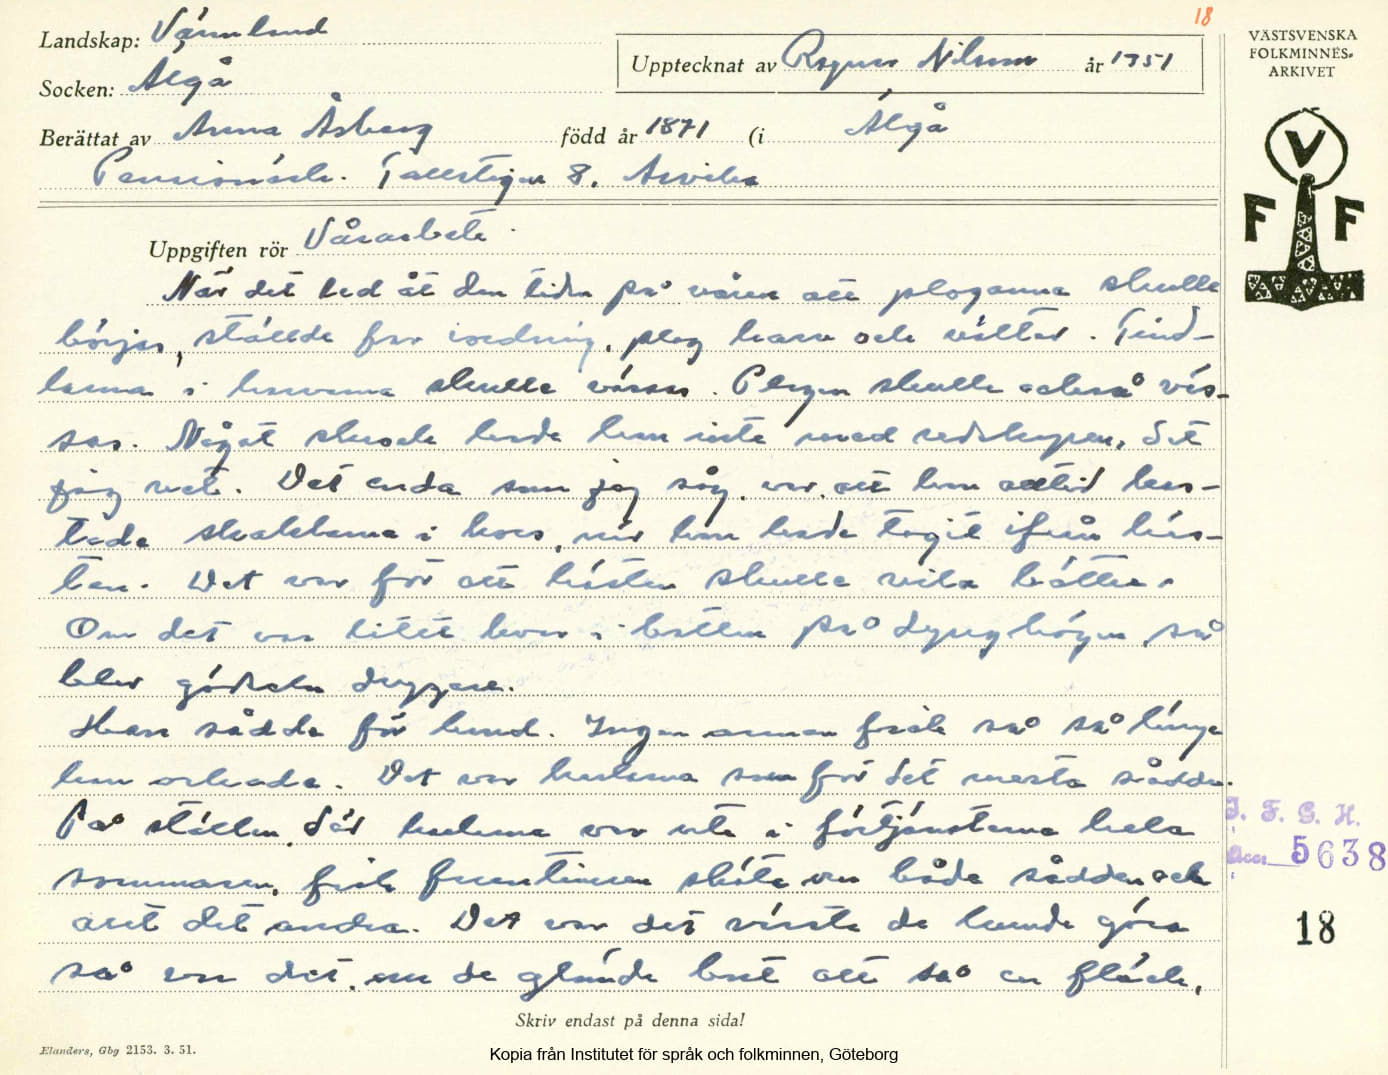 18
Landskap: Värmland
Socken: Älgå
Upptecknat av Ragnar Nilsson år 1951
Berättat av Anna Åsberg född år 1871 (i Älgå
Pensionärh. Tallstigen 8, Arvika
VÄSTSVENSKA
FOLKMINNES-
ARKIVET
V
F F
Uppgiften rör Vårarbete
När det led åt den tiden på våren att plogarna skulle
börja, ställde far iordning, plog harv och vältar. Tind-
larna i harvarna skulle vässas. Plogen skulle också väs-
sas. Något skrock hade han inte med redskapen, det
jag vet. Det enda som jag såg, var att han alltid kas-
tade skaklarna i kors, när han hade tagit ifrån häs-
ten. Det var för att hästen skulle vila bättre.
Om det var litet havr i botten på dynghögen, så
blev gödseln drygare.
Han sådde för hand. Ingen annan fick så så länge
han orkade. Det var karlarna som för det mesta sådde.
På ställen där karlarna var ute i förtjänsterna hela
sommaren, fick fruntimren sköta om både sådden och
allt det andra. Det var det värsta de kunde göra
så var det, om de glömde bort att så en fläck,
J. F. G. H.
Acc. 5638
18
Skriv endast på denna sida!
Elanders, Gbg 2153. 3. 51.
Kopia från Institutet för språk och folkminnen, Göteborg